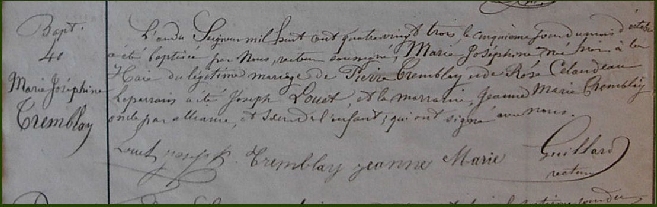 Bapt.
40
Marie Joséphine
Tremblay
L'an du Seigneur mil huit cent quatre vingt trois le cinquième jour du mois d'octobre
a été baptisée par Nous, recteur soussigné, Marie Joséphine née hier à la
Hare du légitime mariage de Pierre Tremblay et de Rose
Le parrain a été Joseph Louet, et la marraine, Jeanne Marie Tremblay
oncle par alliance, et sœur de l'enfant; qui ont signé avec nous.
Louet joseph Tremblay jeanne Marie Guillard
recteur